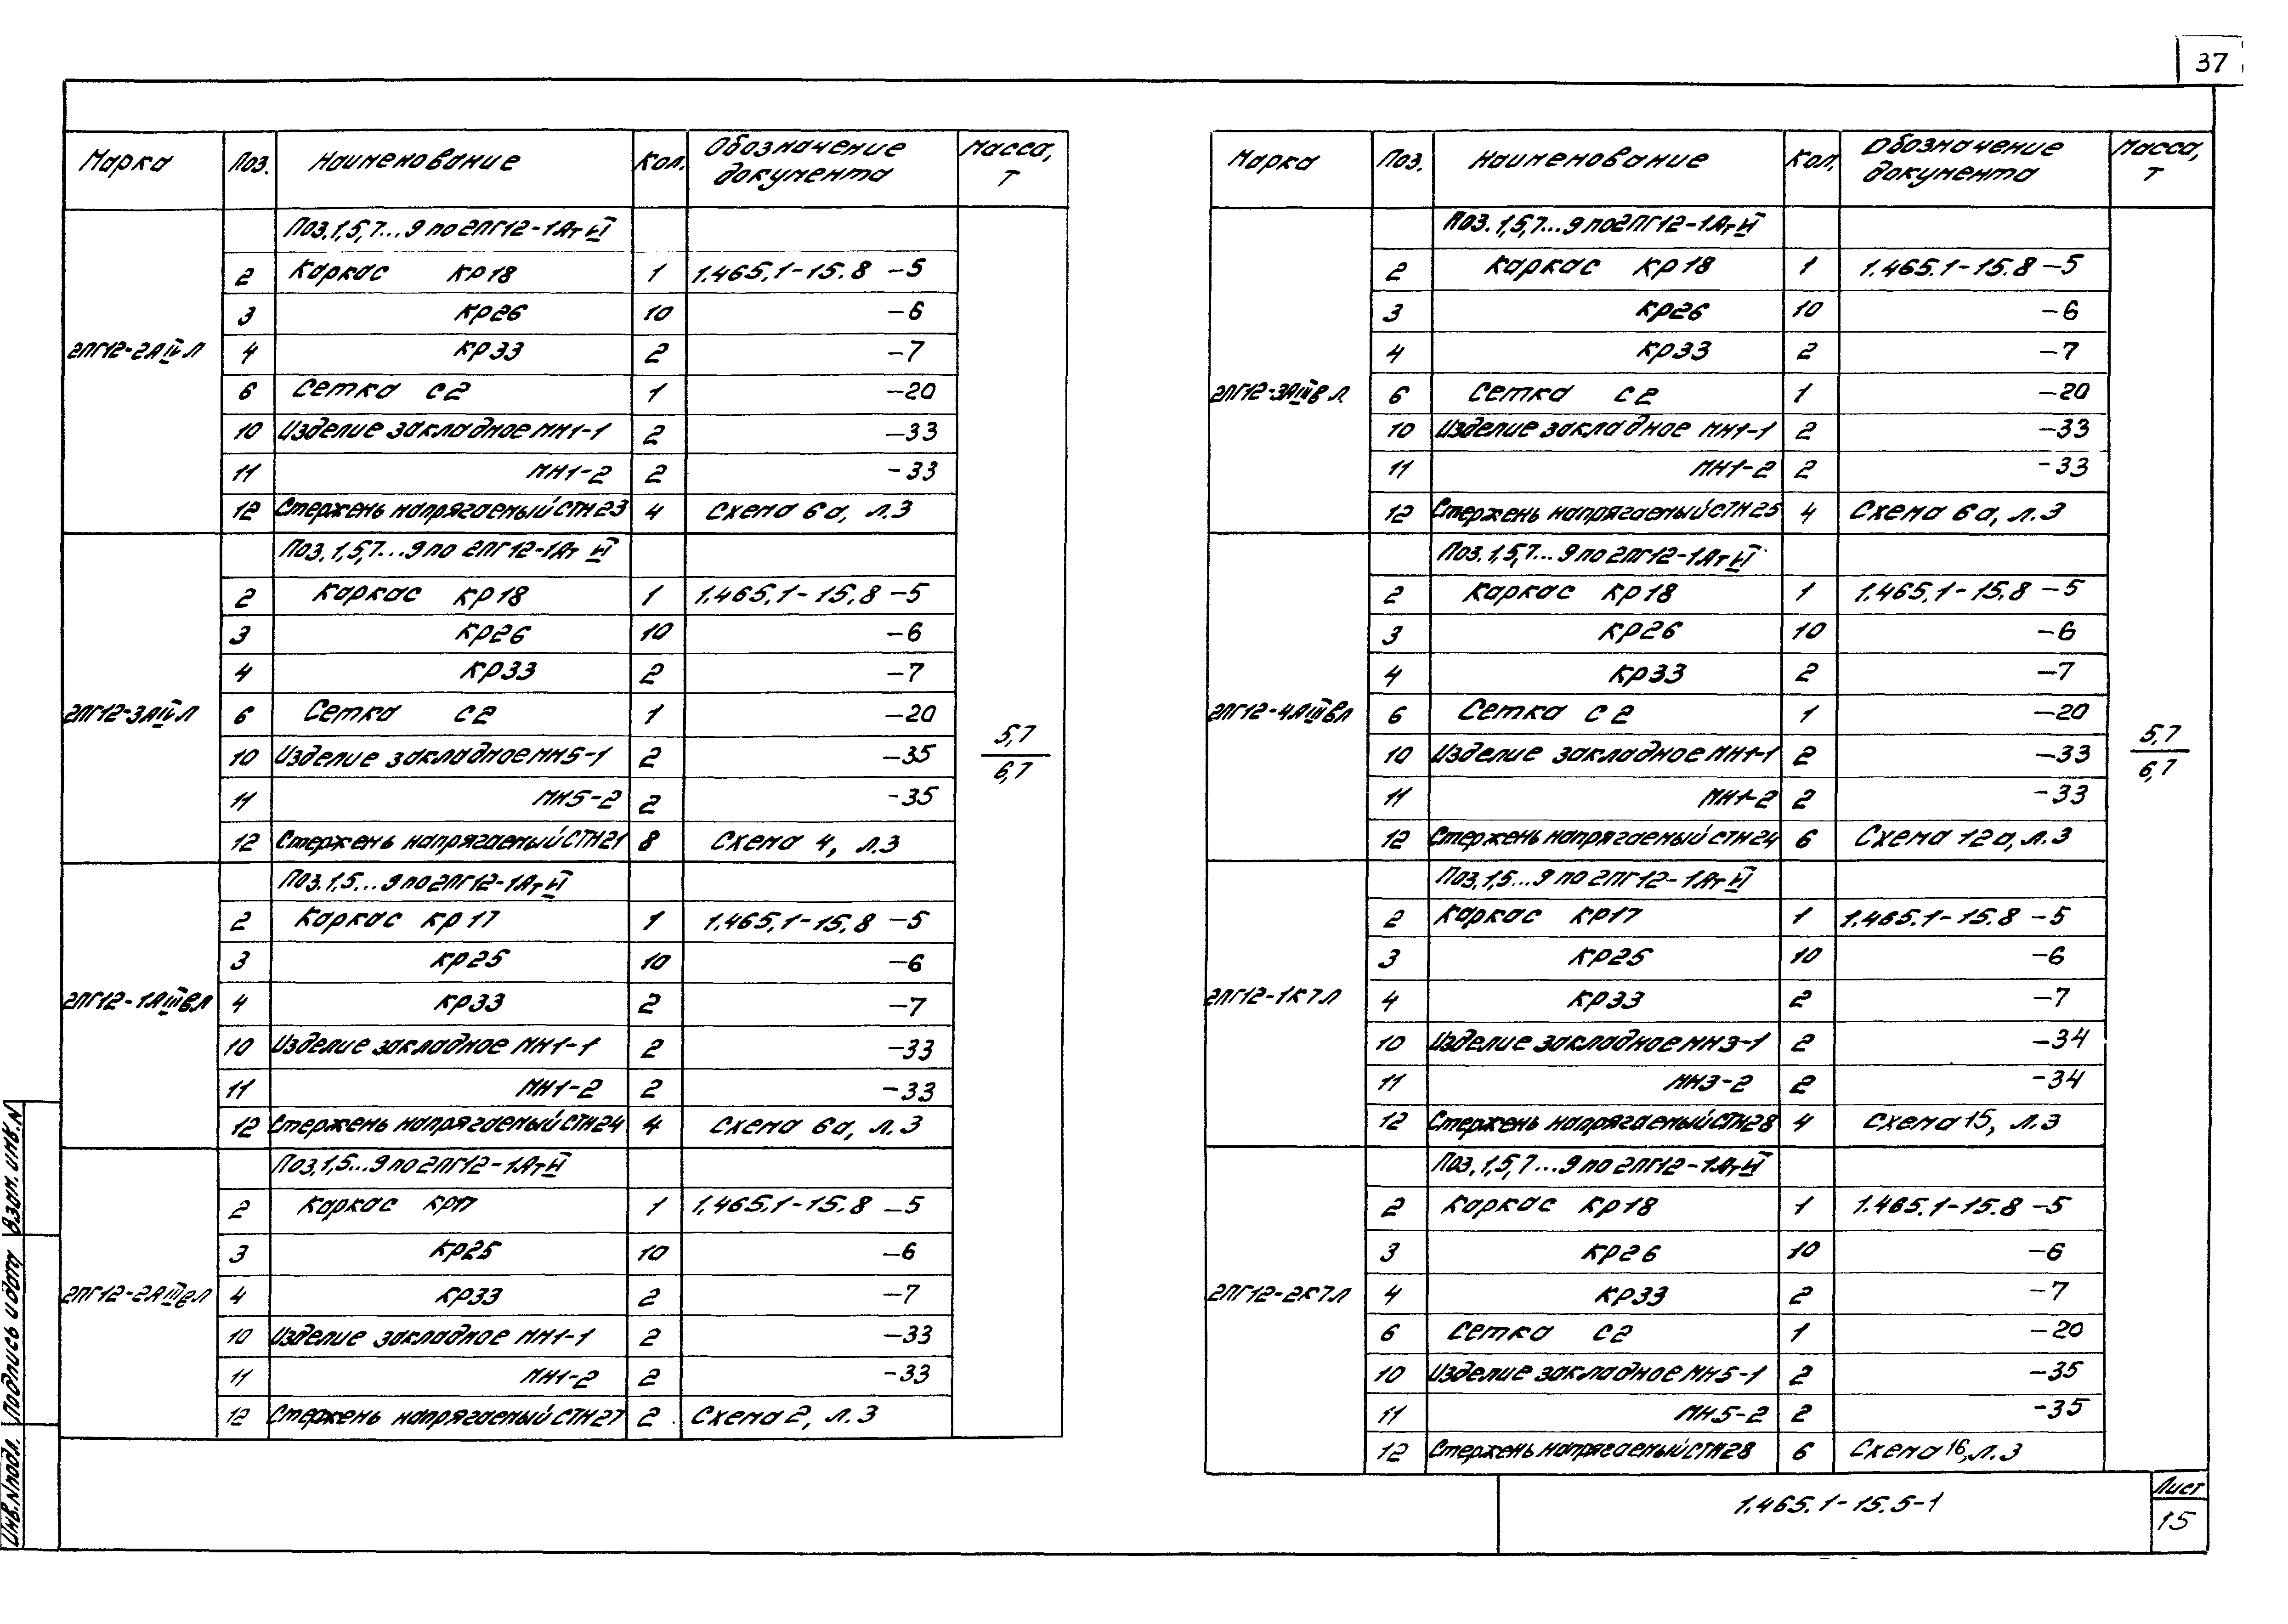 37
Марка Поз. Наименование Кол. Обозначение документа Масса, т
2ПГ12-2АIVЛ
Поз. 1,5,7...9 по 2ПГ12-1АтVI
2 Каркас КР18 1 1.465.1-15.8 -5
3 КР26 10 -6
4 КР33 2 -7
6 Сетка С2 1 -20
10 Изделие закладное МН1-1 2 -33
11 МН1-2 2 -33
12 Стержень напрягаемый СТН23 4 Схема 6а, л.3
2ПГ12-3АIVЛ
Поз. 1,5,7...9 по 2ПГ12-1АтVI
2 Каркас КР18 1 1.465.1-15.8 -5
3 КР26 10 -6
4 КР33 2 -7
6 Сетка С2 1 -20
10 Изделие закладное МН5-1 2 -35
11 МН5-2 2 -35
12 Стержень напрягаемый СТН21 8 Схема 4, л.3
5,7
6,7
2ПГ12-1АIIIвЛ
Поз. 1,5...9 по 2ПГ12-1АтVI
2 Каркас КР17 1 1.465.1-15.8 -5
3 КР25 10 -6
4 КР33 2 -7
10 Изделие закладное МН1-1 2 -33
11 МН1-2 2 -33
12 Стержень напрягаемый СТН24 4 Схема 6а, л.3
2ПГ12-2АIIIвЛ
Поз. 1,5...9 по 2ПГ12-1АтVI
2 Каркас КР17 1 1.465.1-15.8 -5
3 КР25 10 -6
4 КР33 2 -7
10 Изделие закладное МН1-1 2 -33
11 МН1-2 2 -33
12 Стержень напрягаемый СТН27 2 Схема 2, л.3
Марка Поз. Наименование Кол. Обозначение документа Масса, т
2ПГ12-3АIIIвЛ
Поз. 1,5,7...9 по 2ПГ12-1АтVI
2 Каркас КР18 1 1.465.1-15.8 -5
3 КР26 10 -6
4 КР33 2 -7
6 Сетка С2 1 -20
10 Изделие закладное МН1-1 2 -33
11 МН1-2 2 -33
12 Стержень напрягаемый СТН25 4 Схема 6а, л.3
2ПГ12-4АIIIвЛ
Поз. 1,5,7...9 по 2ПГ12-1АтVI
2 Каркас КР18 1 1.465.1-15.8 -5
3 КР26 10 -6
4 КР33 2 -7
6 Сетка С2 1 -20
10 Изделие закладное МН1-1 2 -33
11 МН1-2 2 -33
12 Стержень напрягаемый СТН24 6 Схема 12а, л.3
5,7
6,7
2ПГ12-1К7Л
Поз. 1,5...9 по 2ПГ12-1АтVI
2 Каркас КР17 1 1.465.1-15.8 -5
3 КР25 10 -6
4 КР33 2 -7
10 Изделие закладное МН3-1 2 -34
11 МН3-2 2 -34
12 Стержень напрягаемый СТН28 4 Схема 15, л.3
2ПГ12-2К7Л
Поз. 1,5,7...9 по 2ПГ12-1АтVI
2 Каркас КР18 1 1.465.1-15.8 -5
3 КР26 10 -6
4 КР33 2 -7
6 Сетка С2 1 -20
10 Изделие закладное МН5-1 2 -35
11 МН5-2 2 -35
12 Стержень напрягаемый СТН28 6 Схема 16, л.3
1.465.1-15.5-1
Лист
15
Инв.Nподл. Подпись и дата Взам. инв.N